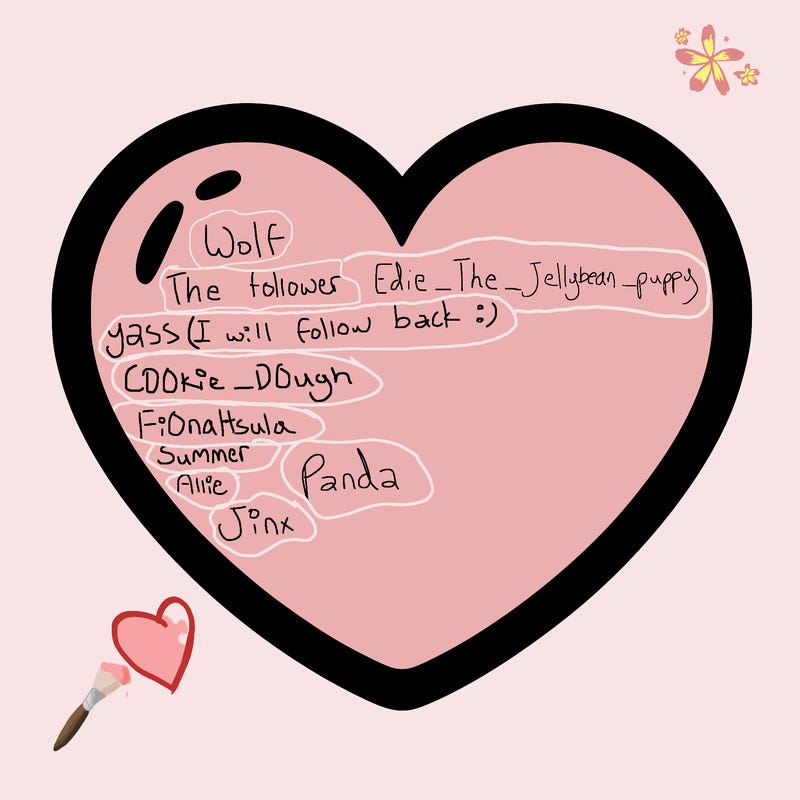 Wolf
The follower Edie_The_Jellybean_puppy
yass(I will follow back :)
COOkie_DOugh
FiOnaHsula
Summer
Allie
Panda
Jinx